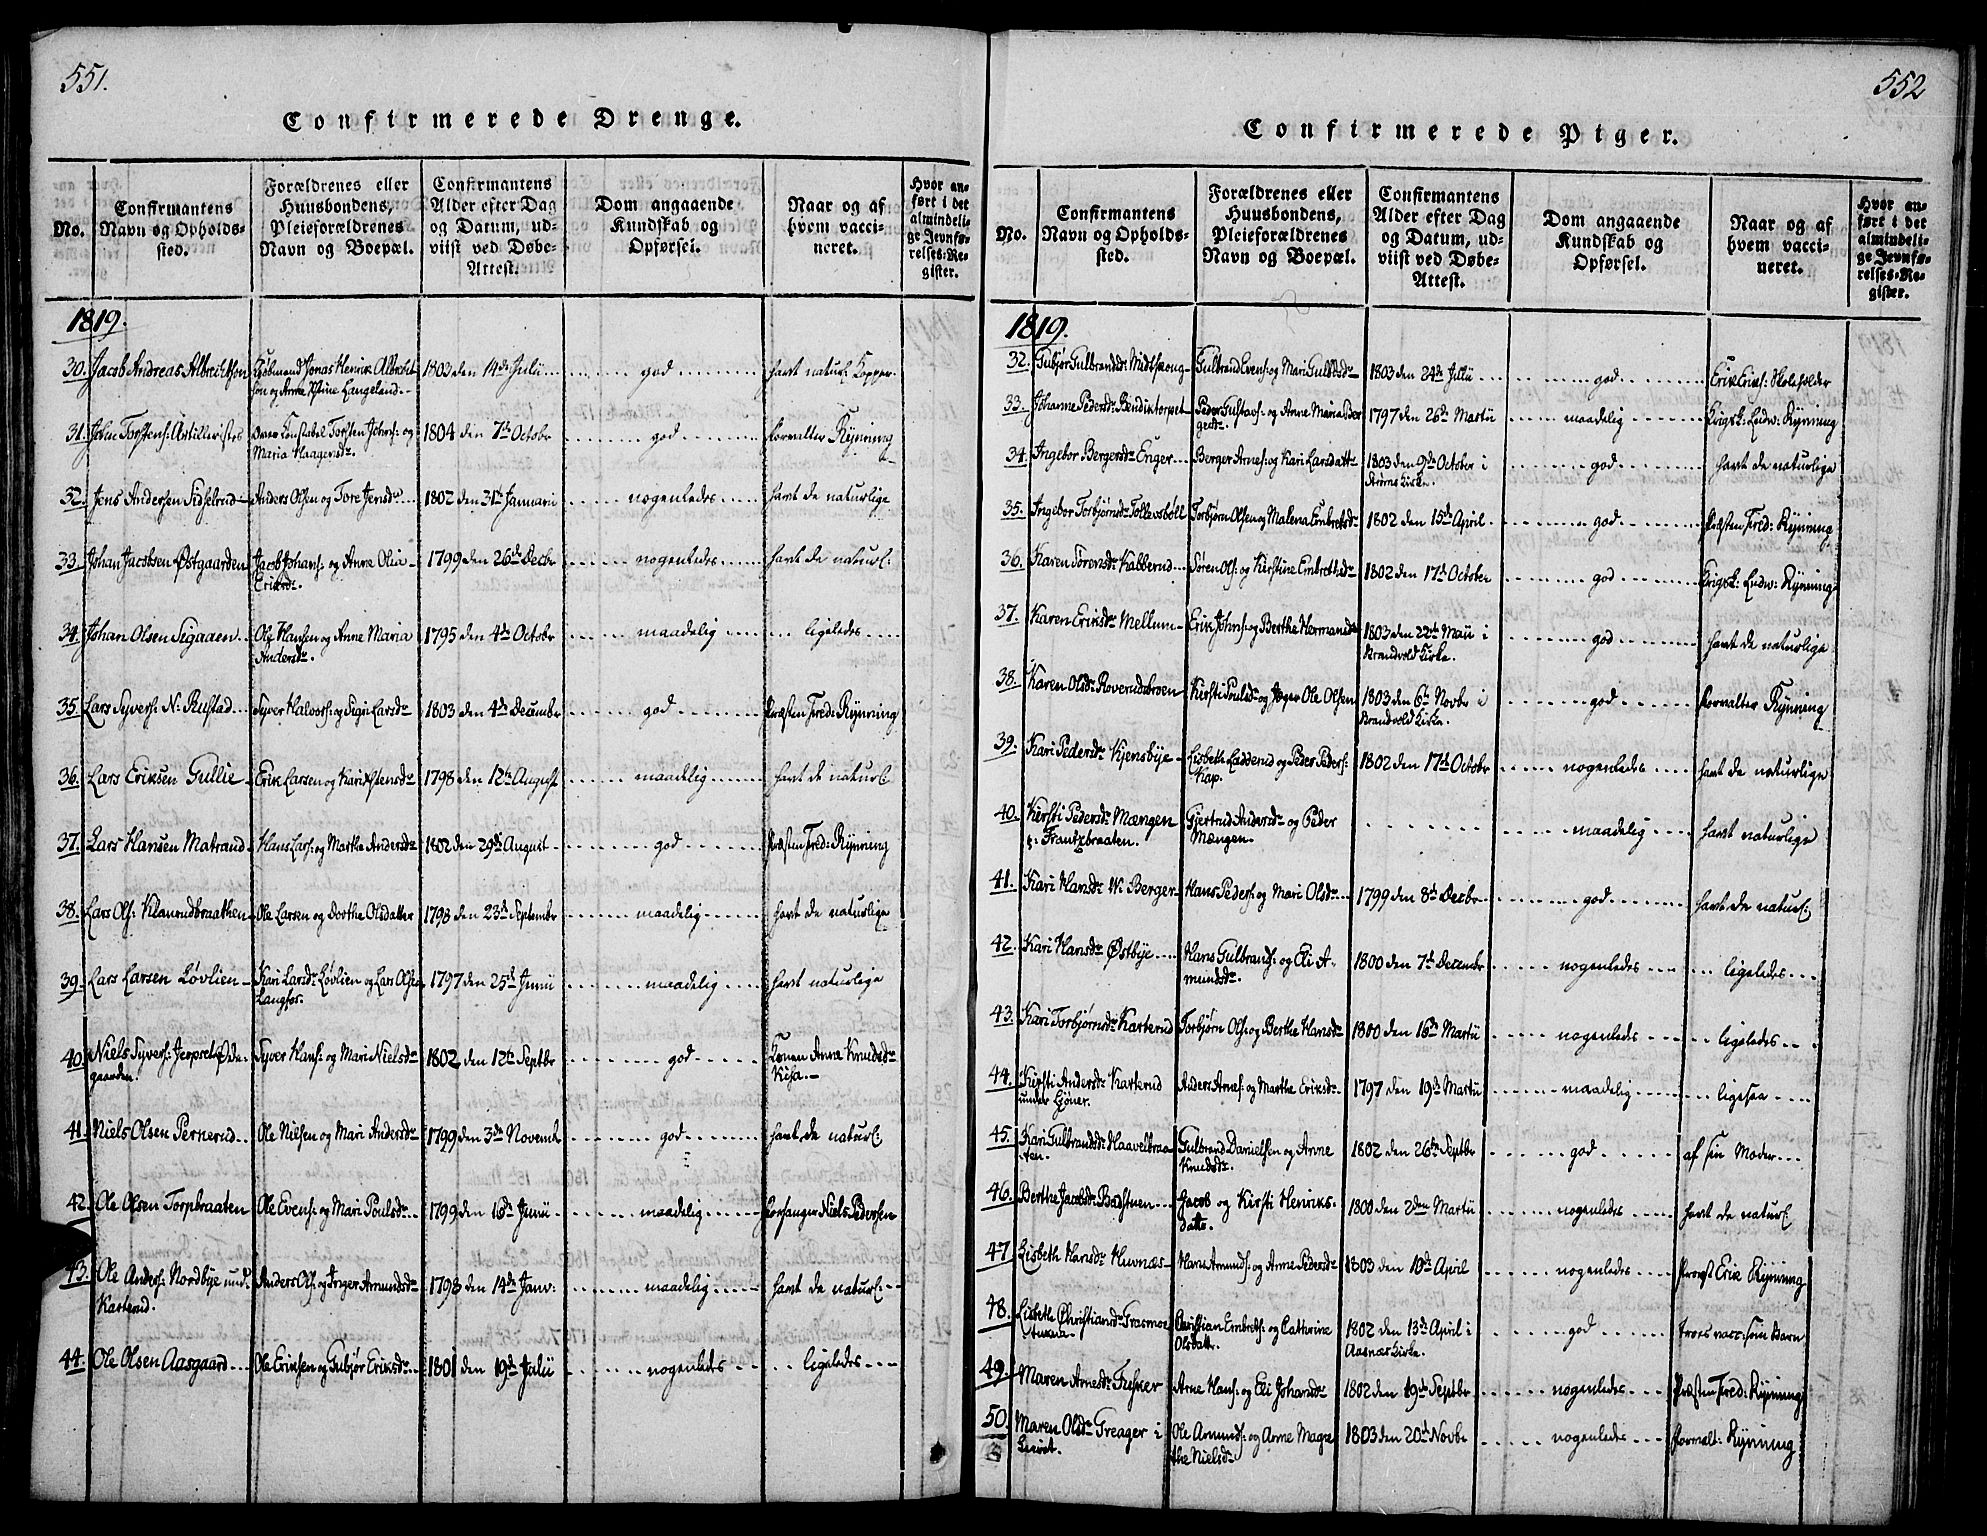 551.
Confirmerede Drenge.
No.
Confirmantens
Navn og Opholds-
sted.
Forældrenes eller
Huusbondens,
Pleieforældrenes
Navn og Boepæl.
Confirmantens
Alder efter Dag
og Datum, ud-
viist ved Døbe-
Attest.
Dom angaaende
Kundskab og
Opførsel.
Naar og af
hvem vacci-
neret.
Hvor an-
ført i det
almindeli-
ge Jevnfø-
relses-Re-
gister.
1819.
30. Jacob Andreas Albrichtsen Kiøbmand Jonas Henrik Albricht 1803 den 14de Julii god havt naturl. Kopper
sen og Anne Stine Langeland
31. John Torstens: Artillerist Over Constabel Torsten Johns: og 1804 den 7de Octobr god Forvalter Rynning
Maria Haagensdr.
32. Jens Andersen Sidselrud Anders Olsen og Tore Jensdr 1802 den 31te Januarii nogenledes havt de naturlige
33. Johan Jacobsen Østgaarden Jacob Johans: og Anne Olia 1799 den 26de Decbr nogenledes havt de naturl:
Eriksdr.
34. Johan Olsen Sigaaen Ole Hansen og Anne Maria 1795 den 4de Octobr maadelig ligeledes
Andersdr.
35. Lars Syvers: N: Rustad Syver Halvors: og Sigri Larsdr 1803 den 4de Decembr god Præsten Fred: Rynning
36. Lars Eriksen Gullie Erik Larsen og Kari Ostensdr 1798 den 12te August maadelig havt de naturl:
37. Lars Hansen Matrand Hans Lars: og Marthe Andersdr 1802 den 29de August god Præsten Fred: Rynning
38. Lars Ols: Klanrudbraathen Ole Larsen og Dorthe Olsdatter 1798 den 23de Septembr maadelig havt de naturlige
39. Lars Larsen Løvlien Kari Larsdr Løvlien og Lars Olsen 1797 den 25de Junii maadelig havt naturlige
Langfos.
40. Niels Syvers: Jeppreløde- Syver Hans: og Mari Nielsdr 1802 den 12te Septbr god Konen Anne Knudsdr
gaarden. Kisa.
41. Niels Olsen Pernerud Ole Nielsen og Mari Andersdr 1799 den 3de Novembr god havt de naturl:
42. Ole Olsen Torpbraaten Ole Evens: og Mari Poulsdr 1799 den 16de Junii maadelig Forsanger Niels Pedersen
43. Ole Anders: Nordbye und: Anders Ols: og Inger Amundsdr 1798 den 14de Janv: maadelig havt de naturl:
Karterud.
44. Ole Olsen Aasgaard Ole Eriksen og Gubjør Eriksdr 1801 den 19de Julii nogenledes ligeledes
552
Confirmerede Piger.
No.
Confirmantens
Navn og Opholds-
sted.
Forældrenes eller
Huusbondens,
Pleieforældrenes
Navn og Boepæl.
Confirmantens
Alder efter Dag
og Datum, ud-
viist ved Døbe-
Attest.
Dom angaaende
Kundskab og
Opførsel.
Naar og af
hvem vacci-
neret.
Hvor an-
ført i det
almindeli-
ge Jevnfø-
relses-Re-
gister.
1819.
32. Gubjør Gulbrandsdr Midtskoug Gulbrand Evens: og Mari Gulbrdsdr 1803 den 24de Julii god Erik Eriks: Skoleholder
33. Johanne Pedersdr Bendiktorpet Peder Gustavs: og Anne Maria Ber 1797 den 26de Martii maadelig Krigsk: Ludv: Rynning
gerdtr
34. Ingebor Bergersdr Enger Berger Arnes: og Kari Larsdattr 1803 den 9de October i god havt de naturlige
Strøms Kirke.
35. Ingebor Torbjørnsdr Tollevsbøll Torbjørn Olsen og Malena Embretsdr 1802 den 15de April god Præsten Fred: Rynning
36. Karen Sørensdr Kabberud Søren Ols: og Kirstine Embrethsdr 1802 den 17de October god Krigsk: Ludv: Rynning
37. Karen Eriksdr Mellum Erik Johns: og Berthe Hermansdr 1803 den 22de Maii i god havt de naturlige
Brandvold Kirke.
38. Karen Olsdr Roverudsbroen Kirsti Poulsdr og Jæger Ole Olsen 1803 den 6te Novbr i god Forvalter Rynning
Brandvold Kirke.
39. Kari Pedersdr Kjensbye Lisbeth Ladderud og Peder Peders: 1802 den 17de Octobr nogenledes havt de naturlige
Kiap.
40. Kirsti Pedersdr Mængen Gjertrud Andersdr og Peder maadelig havt naturlige
p: Frantzbraaten. Mængen.
41. Kari Hansdr N: Berger Hans Peders: og Mari Olsdr 1799 den 8de Decbr god havt de naturl:
42. Kari Hansdr Østbye Hans Gulbrands: og Eli A- 1800 den 7de Decembr nogenledes ligeledes
mundsdr.
43. Kari Torbjørnsdr Karterud Torbjørn Ols: og Berthe Hansdr 1800 den 16de Martii nogenledes ligeledes
44. Kirsti Andersdr Karterud Anders Arnes: og Marthe Eriksdr 1797 den 19de Martii maadelig ligesaa
under Ljøner.
45. Kari Gulbrandsdr Haavelbraa Gulbrand Danielsen og Anne 1802 den 26de Septbr god af sin Moder
ten. Knudsdr.
46. Berthe Jacobsdr Badstuen Jacob og Kirsti Henriks- 1800 den 2den Martii nogenledes havt de naturl:
dattr.
47. Lisbeth Hansdr Huunæs Hans Amunds: og Anne Pedersdr 1803 den 10de April nogenledes Provst Erik Rynning
48. Lisbeth Christiansdr Grasmoe Christian Embrets: og Cathrine 1802 den 13de April i god som Barn
Olsdattr. Aasnæs Kirke.
49. Maren Arnesdr Fusner Arne Hans: og Eli Johansdr 1802 den 19de Septbr nogenledes Præsten Fred: Rynning
50. Maren Olsdr Greager i Ole Amunds: og Anne Magre 1803 den 20de Novbr nogenledes Forvalt: Rynning
Lievet. the Nielsdr